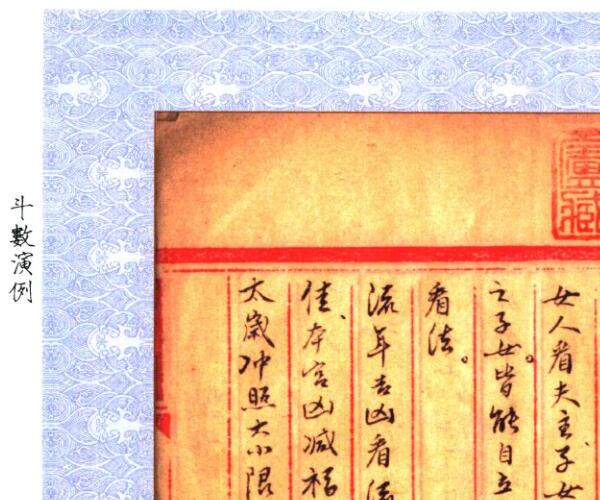 女人看夫主子女
之子女皆能自立
看法。
流年吉凶看流
佳、本宮凶減福
太歲冲照大小限
斗數演例